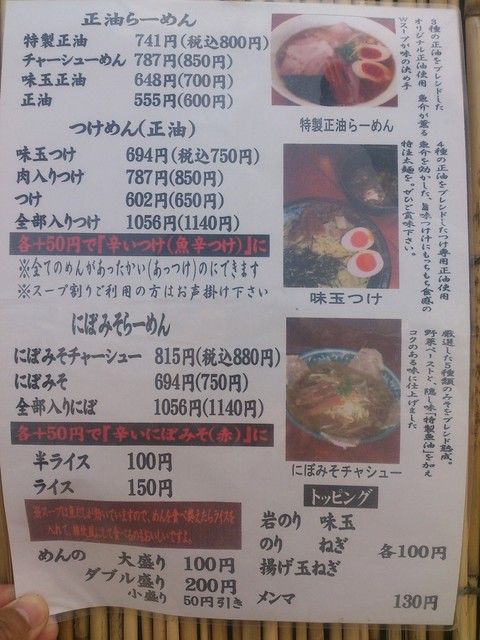 正油らーめん
特製正油 741円(税込800円)
チャーシューめん 787円(850円)
味玉正油 648円(700円)
正油 555円(600円)
3種の正油をブレンドした
オリジナル正油使用 魚介が薫る
Wスープが味の決め手
特製正油らーめん
つけめん(正油)
味玉つけ 694円(税込750円)
肉入りつけ 787円(850円)
つけ 602円(650円)
全部入りつけ 1056円(1140円)
各+50円で『辛いつけ(魚辛つけ)』に
※全てのめんがあったかい(あっつけ)のにできます
※スープ割りご利用の方はお声掛け下さい
4種の正油をブレンドしたつけ専用正油使用
魚介を効かした、旨味つけ汁にもっちもち食感の
特注太麺を。ぜひご賞味下さい。
味玉つけ
にぼみそらーめん
にぼみそチャーシュー 815円(税込880円)
にぼみそ 694円(750円)
全部入りにぼ 1056円(1140円)
各+50円で『辛いにぼみそ(赤)』に
厳選した5種類のみそをブレンド熟成。
野菜ペーストと、隠し味「特製魚油」を加え
コクのある味に仕上げました
にぼみそチャシュー
半ライス 100円
ライス 150円
入れて、雑炊風にして食べるのもおいしいですよ。
めんの 大盛り 100円
ダブル盛り 200円
小盛り 50円引き
トッピング
岩のり 味玉
のり ねぎ
揚げ玉ねぎ
各100円
メンマ 130円